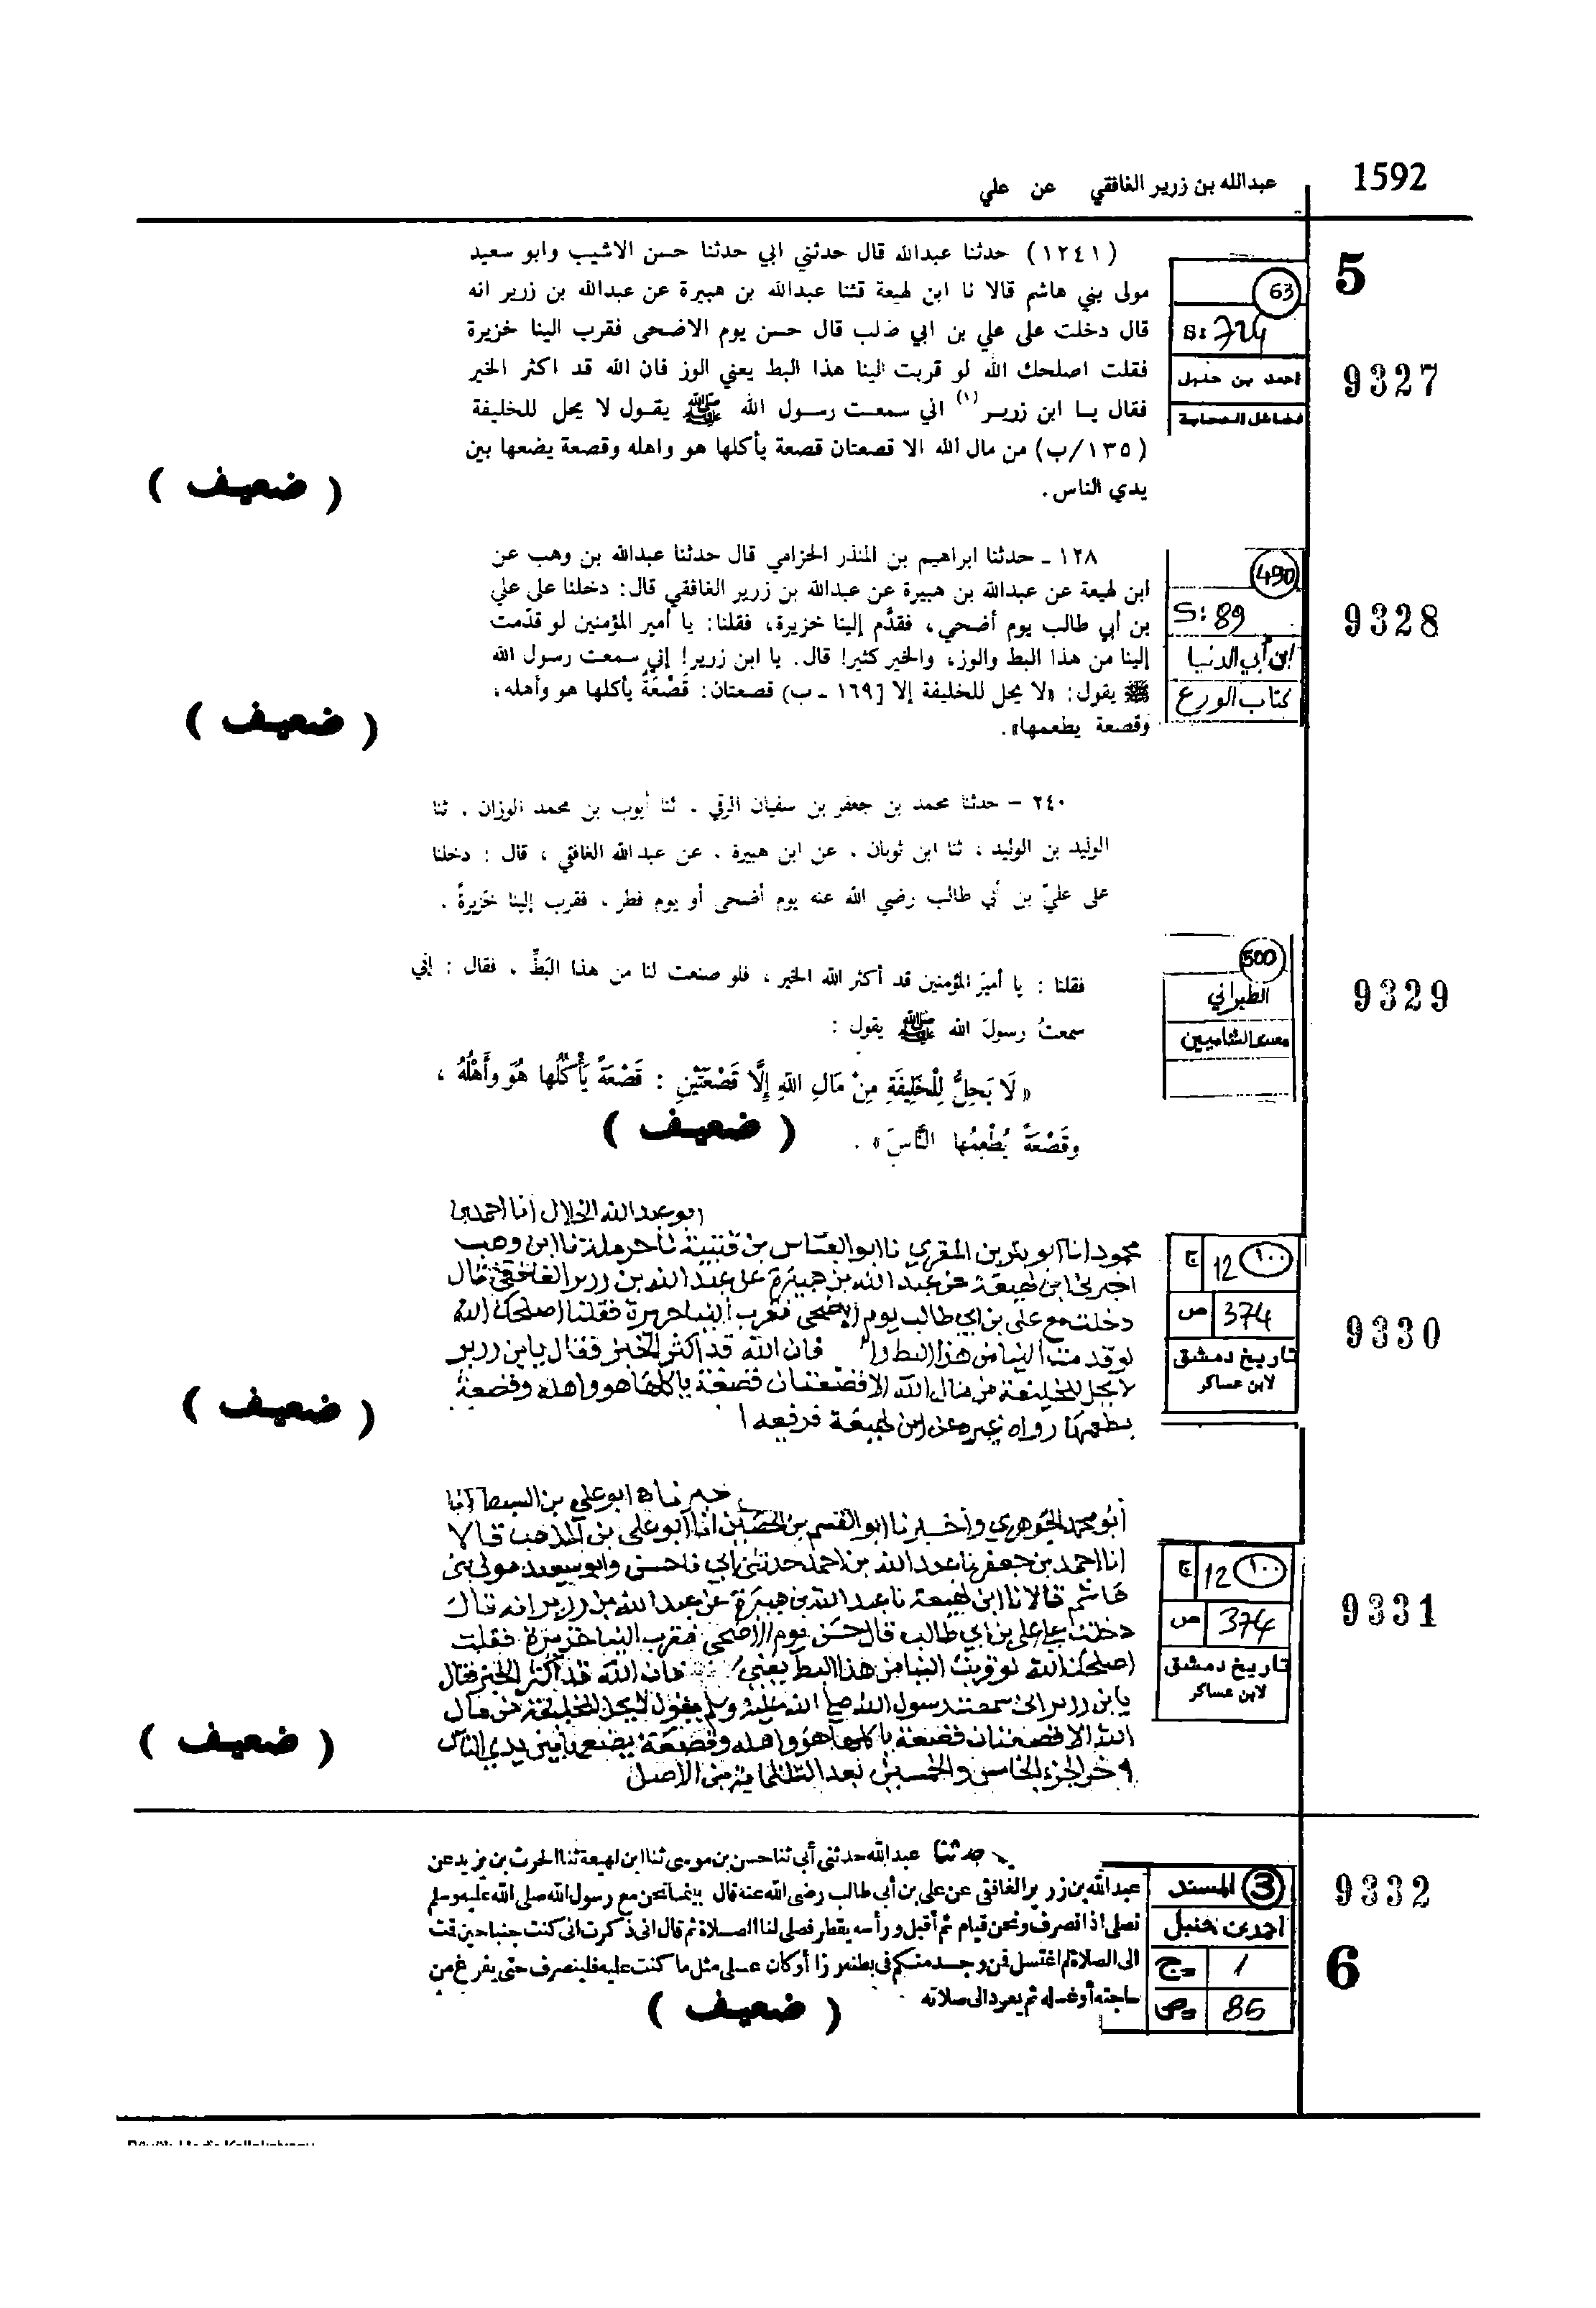 1592
عبدالله بن زرير الغافقي عن علي
5
63
S: 724
9327
احمد بن حنبل
فضائل الصحابة
(١٢٤١) حدثنا عبدالله قال حدثني ابي حدثنا حسن الاشيب وابو سعيد
مولى بني هاشم قالا نا ابن لهيعة قثنا عبدالله بن هبيرة عن عبدالله بن زرير انه
قال دخلت على علي بن ابي طالب قال حسن يوم الاضحى فقرب الينا خزيرة
فقلت اصلحك الله لو قربت الينا هذا البط يعني الوز فان الله قد اكثر الخير
فقال يا ابن زرير (١) اني سمعت رسول الله ﷺ يقول لا يحل للخليفة
(١٣٥/ب) من مال الله الا قصعتان قصعة يأكلها هو واهله وقصعة يضعها بين
يدي الناس .
( ضعيف )
490
S: 89
9328
ابن أبي الدنيا
كتاب الورع
١٢٨ ـ حدثنا ابراهيم بن المنذر الحزامي قال حدثنا عبدالله بن وهب عن
ابن لهيعة عن عبدالله بن هبيرة عن عبدالله بن زرير الغافقي قال: دخلنا على علي
بن أبي طالب يوم أضحي، فقدّم إلينا خزيرة، فقلنا: يا أمير المؤمنين لو قدّمت
إلينا من هذا البط والوز، والخير كثير! قال. يا ابن زرير! إني سمعت رسول الله
ﷺ يقول: «لا يحل للخليفة إلا [١٦٩ ـ ب) قصعتان: قَصْعَةً يأكلها هو وأهله،
وقصعة يطعمها».
( ضعيف )
٢٤٠ – حدثنا محمد بن جعفر بن سفيان الرقي . ثنا أيوب بن محمد الوزان . ثنا
الوليد بن الوليد ، ثنا ابن ثوبان . عن ابن هبيرة . عن عبدالله الغافقي ، قال : دخلنا
على عليّ بن أبي طالب رضي الله عنه يوم أضحى أو يوم فطر . فقرب إلينا خَزيرةً .
500
الطبراني
9329
مسند الشاميين
فقلنا : يا أميرَ المؤمنين قد أكثر الله الخير ، فلو صنعت لنا من هذا البَطِّ . فقال : إني
سمعتُ رسولَ الله ﷺ يقول :
« لَا يَحِلُّ لِلْخَلِيفَةِ مِنْ مَالِ اللهِ إِلَّا قَصْعَتَيْنِ : قَصْعَةً يَأْكُلُها هُوَ وَأَهْلُهُ ،
وَقَصْعَةً يُطْعِمُها النَّاسَ » .
( ضعيف )
ج 12 ١٠٠
ص 374
9330
تاريخ دمشق
لابن عساكر
ابو عبد الله الخلال انا احمد بن
محمود انا ابو بكر بن المقري نا ابو العباس بن قتيبة نا حرملة نا ابن وهب
اخبرني ابن لهيعة عن عبد الله بن هبيرة عن عبد الله بن زرير الغافقي قال
دخلت مع علي بن ابي طالب يوم الاضحى فقرب الينا خزيرة فقلنا اصلحك الله
لو قدمت الينا من هذا البط فان الله قد اكثر الخير فقال يا بن زرير
لا يحل للخليفة من مال الله الا قصعتان قصعة ياكلها هو واهله وقصعة
يطعمها رواه غيره عن ابن لهيعة فرفعه
( ضعيف )
ج 12 ١٠٠
ص 374
9331
تاريخ دمشق
لابن عساكر
خبرناه ابو علي بن السبط انا
أبو محمد الجوهري واخبرنا ابو القسم بن الحصين انا ابو علي بن المذهب قالا
انا احمد بن جعفر نا عبد الله بن احمد حدثني ابي نا حسن وابو سعيد مولى بني
هاشم قالا نا ابن لهيعة نا عبد الله بن هبيرة عن عبد الله بن زرير انه قال
دخلت على علي بن ابي طالب قال حسن يوم الاضحى فقرب الينا خزيرة فقلت
اصلحك الله لو قربت الينا من هذا البط يعني فان الله قد اكثر الخير فقال
يا بن زرير اني سمعت رسول الله صلى الله عليه وسلم يقول لا يحل للخليفة من مال
الله الا قصعتان قصعة ياكلها هو واهله وقصعة يضعها بين يدي الناس
اخر الجزء الخامس والخمسين بعد الثلثمائة من الاصل
( ضعيف )
المسند 3
9332
احمد بن حنبل
6
ج 1
ص 86
حدثنا عبدالله حدثنى أبى ثنا حسن بن موسى ثنا ابن لهيعة ثنا الحرث بن يزيد عن
عبدالله بن زرير الغافقى عن على بن أبى طالب رضى الله عنه قال بينما نحن مع رسول الله صلى الله عليه وسلم
نصلى اذا نصرف ونحن قيام ثم أقبل ورأسه يقطر فصلى لنا الصلاة ثم قال انى ذكرت انى كنت جنبا حين قمت
الى الصلاة لم اغتسل فمن وجد منكم فى بطنه رزا أو كان على مثل ما كنت عليه فلينصرف حتى يفرغ من
حاجته أو غسله ثم يعود الى صلاته
( ضعيف )